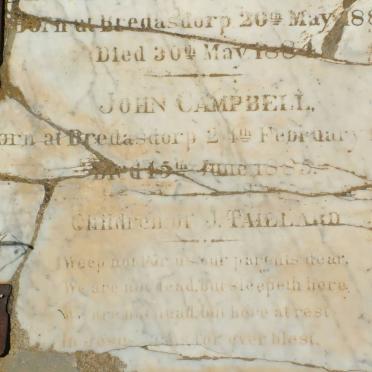 Born at Bredasdorp 26th May 188
Died 30th May 1884
JOHN CAMPBELL,
orn at Bredasdorp 24th February
Died 15th June 1885.
CHILDREN OF J. TAILLARD
Weep not for us our parents dear,
We are not dead, but sleepeth here
We are not dead, but here at rest
In Jesus for ever blest.